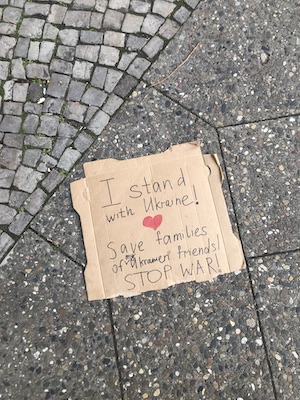 I stand
with Ukraine!
Save families
of my Ukrainen friends!
STOP WAR!